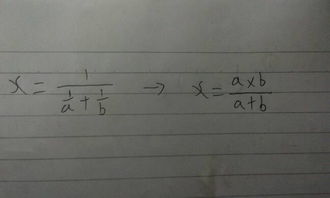 x = 1 / (1/a + 1/b) → x = a×b / a+b